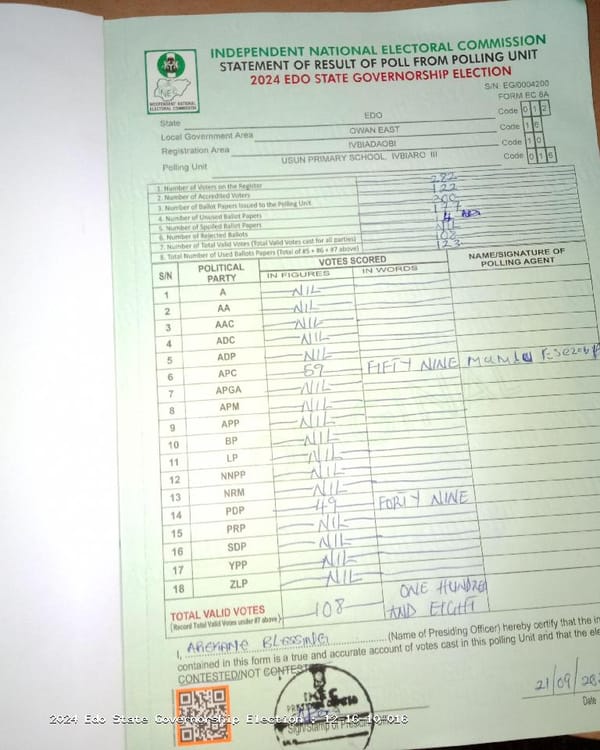 INDEPENDENT NATIONAL ELECTORAL COMMISSION
STATEMENT OF RESULT OF POLL FROM POLLING UNIT
2024 EDO STATE GOVERNORSHIP ELECTION
S/N: EG/0004200
FORM EC 8A
INEC
INDEPENDENT NATIONAL ELECTORAL COMMISSION
State EDO Code 0 1 2
Local Government Area OWAN EAST Code 1 6
Registration Area IVBIADAOBI Code 1 0
Polling Unit USUN PRIMARY SCHOOL, IVBIARO III Code 0 1 6
1. Number of Voters on the Register 282
2. Number of Accredited Voters 122
3. Number of Ballot Papers Issued to the Polling Unit 200
4. Number of Unused Ballot Papers
5. Number of Spoiled Ballot Papers
6. Number of Rejected Ballots NIL
7. Number of Total Valid Votes (Total Valid Votes cast for all parties) 108
8. Total Number of Used Ballots Papers (Total of #5 + #6 + #7 above) 123
S/N POLITICAL PARTY VOTES SCORED NAME/SIGNATURE OF POLLING AGENT
IN FIGURES IN WORDS
1 A NIL
2 AA NIL
3 AAC NIL
4 ADC NIL
5 ADP NIL
6 APC 59 FIFTY NINE
7 APGA NIL
8 APM NIL
9 APP NIL
10 BP NIL
11 LP NIL
12 NNPP NIL
13 NRM NIL
14 PDP 49 FORTY NINE
15 PRP NIL
16 SDP NIL
17 YPP NIL
18 ZLP NIL
TOTAL VALID VOTES 108 ONE HUNDRED AND EIGHT
(Record Total Valid Votes under #7 above)
I, BLESSING (Name of Presiding Officer) hereby certify that the
contained in this form is a true and accurate account of votes cast in this polling Unit and that the
CONTESTED/NOT CONTESTED
INEC
21/09/202
Sign/Stamp of Presiding
Date
2024 Edo State Governorship Election - 12-16-10-016